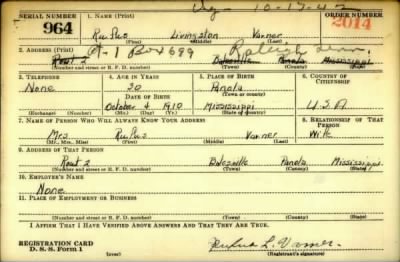 10-17-42
SERIAL NUMBER 1. NAME (Print) ORDER NUMBER
964 Rufus Livingston Varner 2014
(First) (Middle) (Last)
Rt 1 Box 699 Raleigh Tenn.
2. ADDRESS (Print)
Rout 2 Batesville Panola Mississippi
(Number and street or R. F. D. number) (Town) (County) (State)
3. TELEPHONE 4. AGE IN YEARS 5. PLACE OF BIRTH 6. COUNTRY OF CITIZENSHIP
None 30 Panola
DATE OF BIRTH (Town or county)
October 4 1910 Mississippi U.S.A.
(Exchange) (Number) (Mo.) (Day) (Yr.) (State or country)
7. NAME OF PERSON WHO WILL ALWAYS KNOW YOUR ADDRESS 8. RELATIONSHIP OF THAT PERSON
Mrs Rufus Varner Wife
(Mr., Mrs., Miss) (First) (Middle) (Last)
9. ADDRESS OF THAT PERSON
Rout 2 Batesville Panola Mississippi
(Number and street or R. F. D. number) (Town) (County) (State)
10. EMPLOYER'S NAME
None
11. PLACE OF EMPLOYMENT OR BUSINESS
(Number and street or R. F. D. number) (Town) (County) (State)
I AFFIRM THAT I HAVE VERIFIED ABOVE ANSWERS AND THAT THEY ARE TRUE.
REGISTRATION CARD
D. S. S. Form 1 (over) Rufus L. Varner
(Registrant's signature)